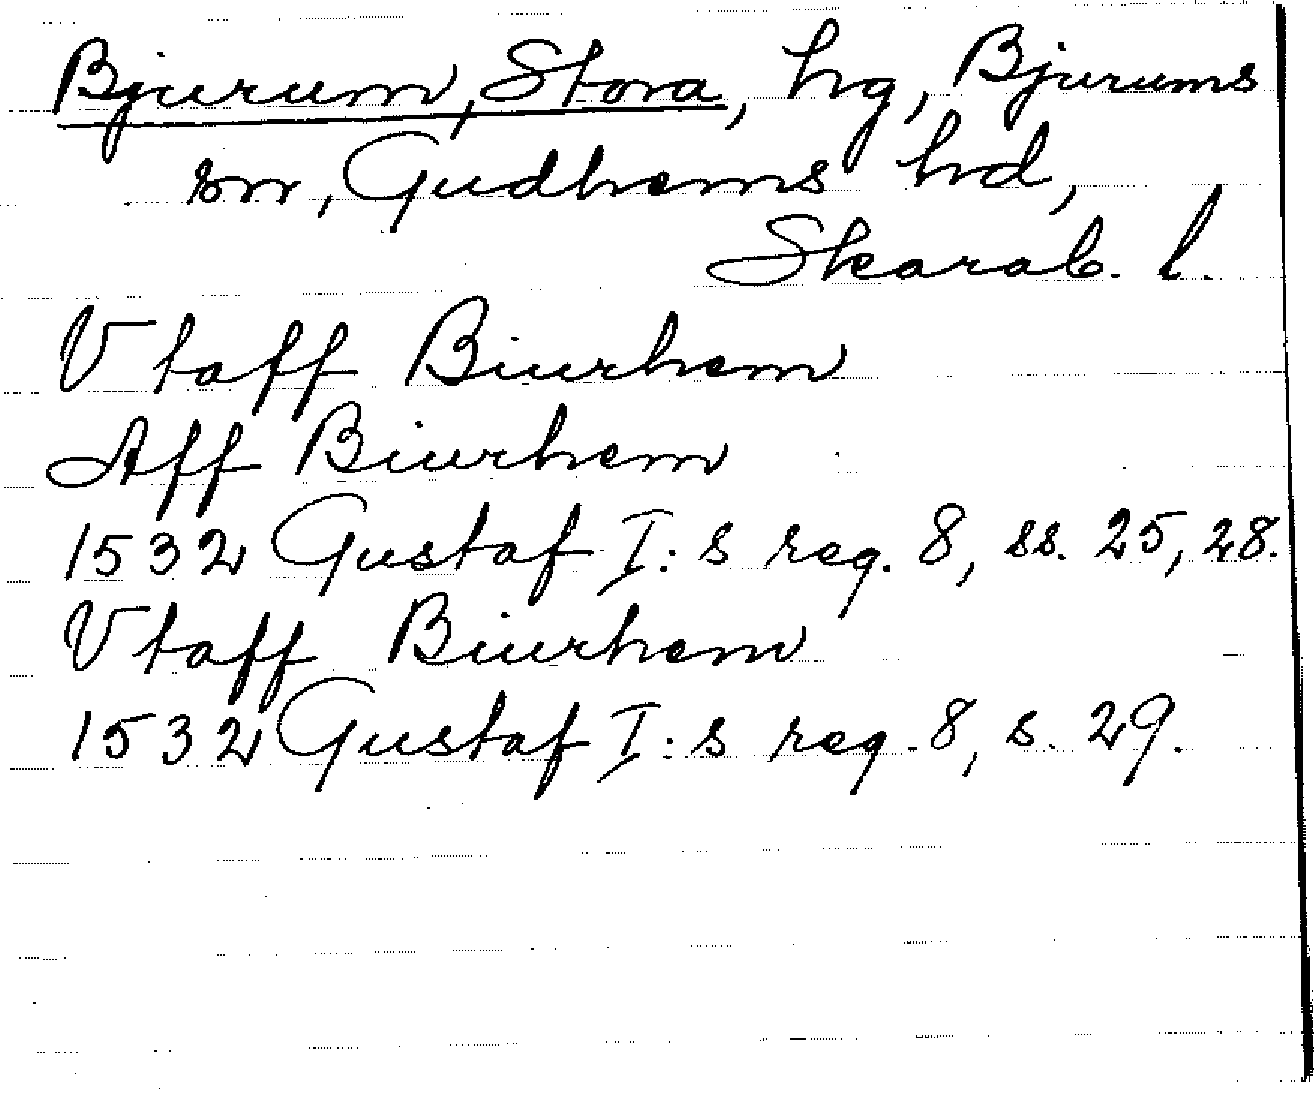 Bjurum, Stora, hg, Bjurums
sn, Gudhems hd,
Skarab. l.
V taff Biurhem
Aff Biurhem
1532 Gustaf I:s reg. 8, ss. 25, 28.
Vtaff Biurhem
1532 Gustaf I:s reg. 8, s. 29.